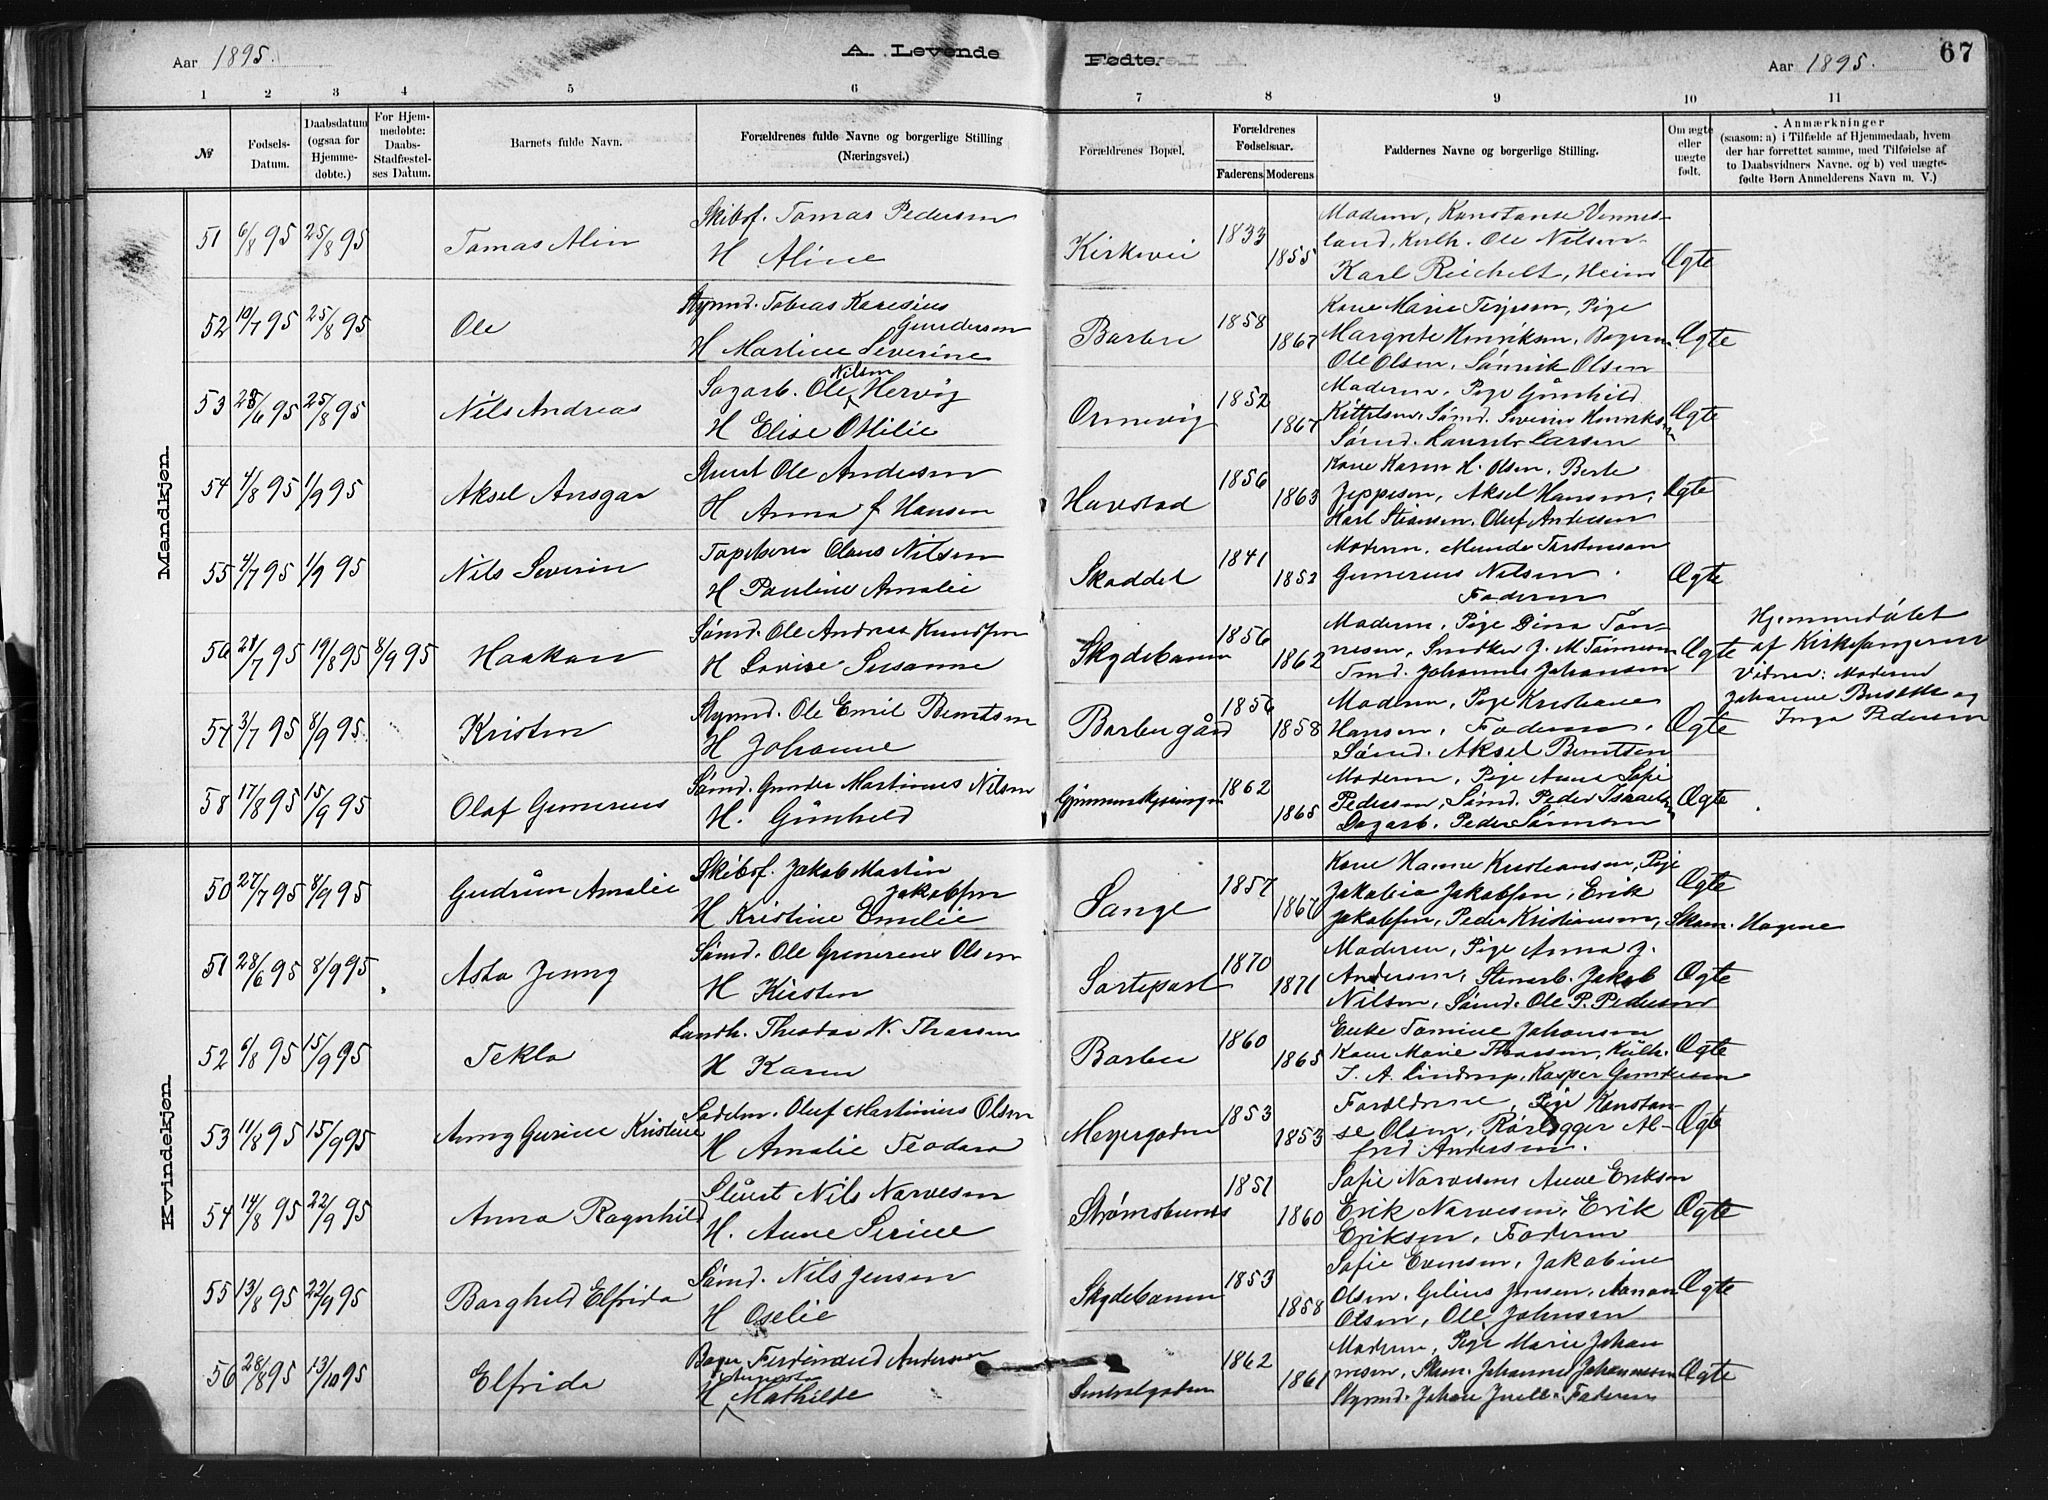 Aar 1895.
A. Levende
Fødte.
Aar 1895.
67
1 2 3 4 5 6 7 8 9 10 11
№
Fødsels-
Datum.
Daabsdatum
(ogsaa for
Hjemme-
døbte.)
For Hjem-
medøbte:
Daabs-
Stadfæstel-
ses Datum.
Barnets fulde Navn.
Forældrenes fulde Navne og borgerlige Stilling
(Næringsvei.)
Forældrenes Bopæl.
Forældrenes
Fødselsaar.
Faderens Moderens
Faddernes Navne og borgerlige Stilling.
Om ægte
eller
uægte
født.
Anmærkninger
(saasom: a) i Tilfælde af Hjemmedaab, hvem
der har forrettet samme, med Tilføielse af
to Daabsvidners Navne, og b) ved uægte-
fødte Børn Anmelderens Navn m. V.)
Mandkjøn.
51 6/8 95 25/8 95 Tomas Alin
Skibsf. Tomas Pedersen
H Aline
Kirkevei 1833 1855
Moderen, Konstanse Vennes-
land, Ole Nilsen
Karl Reichelt, Heim
Ægte
52 10/7 95 25/8 95 Ole
Styrmd. Tobias Karesius
Gundersen
H Martine Severine
Barbu 1858 1867
Kone Marie Terjesen, Pige
Margrete Henriksen, Bogern
Ole Olsen, Sønnik Olsen
Ægte
53 28/6 95 25/8 95 Nils Andreas
Sagarb. Ole Nilsen Hervig
H Elise Otilie
Ormevig 1852 1867
Moderen, Pige Gunhild
Kittelsen, Sømd. Severin Henriksen
Sømd. Laurits Larsen
Ægte
54 4/8 95 1/9 95 Aksel Ansgar
Stuert Ole Andersen
H Anna f Hansen
Havstad 1856 1863
Kone Karen H. Olsen, Berte
Jeppesen, Aksel Hansen,
Karl Stiansen, Oluf Andersen
Ægte
55 4/7 95 1/9 95 Nils Severin
Tapetserer Olaus Nilsen
H Pauline Amalie
Skaddel 1841 1852
Moderen, Munda Torstenson
Gunerius Nilsen
Faderen
Ægte
56 21/7 95 19/8 95 8/9 95 Haakon
Sømd. Ole Andreas Knudsen
H Lovise Susanne
Skydebanen 1856 1862
Moderen, Pige Dina Tøn-
nesen, Snedker J. M. Tønnesen
Tmd. Johannes Johansen
Ægte
Hjemmedøbt
af Kirkesangeren
Vidner: Moderen
Johanne og
Inga Pedersen
57 3/7 95 8/9 95 Kristen
Styrmd. Ole Emil Berntsen
H Johanne
Barbugård 1856 1858
Moderen, Pige Kristiane
Hansen, Faderen,
Sømd. Aksel Berntsen
Ægte
58 17/8 95 15/9 95 Olaf Gunerius
Sømd. Gunder Martinus Nilsen
H. Gunhild
1862 1865
Moderen, Pige Anna Sofie
Pedersen, Sømd. Peder Israelsen
Dagarb. Peder Sørensen
Ægte
Kvindekjøn.
50 27/7 95 8/9 95 Gudrun Amalie
Skibsf. Jakob Martin
Jakobsen
H Kristine Emelie
Songe 1857 1867
Kone Hanne Kristiansen, Pige
Jakobia Jakobsen, Erik
Jakobsen, Peder Kristiansen, Skom. Hagene
Ægte
51 28/6 95 8/9 95 Asta Jenny
Sømd. Ole Gunerius Olsen
H Kirsten
Sortepart 1870 1871
Moderen, Pige Anna J.
Andersen, Stenarb. Jakob
Nilsen, Sømd. Ole P. Pedersen
Ægte
52 6/8 95 15/9 95 Tekla
Landh. Theodor N. Thorsen
H Karen
Barbu 1860 1865
Enke Tomine Johansen
Kone Marie Thorsen, Kulh.
J. A. Lindrup, Kasper Gundersen
Ægte
53 11/8 95 15/9 95 Anny Gurine Kristine
Sadelm. Oluf Martinius Olsen
H Amalie Teodora
Meyergaden 1853 1853
Forældrene, Pige Konstan-
se Olsen, Rørlegger Al-
fred Andersen.
Ægte
54 14/8 95 22/9 95 Anna Ragnhild
Stuert Nils Narvesen
H. Anne Serine
Strømsbunes 1851 1860
Sofie Narvesen, Anne Eriksen
Erik Narvesen, Erik
Eriksen, Faderen
Ægte
55 13/8 95 22/9 95 Borghild Elfrida
Sømd. Nils Jensen
H Oselie
Skydebanen 1853 1858
Sofie Evensen, Jakobine
Olsen, Gelius Jensen, Aanon
Olsen, Ole Johnsen
Ægte
56 28/8 95 13/10 95 Elfrida
Bager Ferdinand Andersen
H Augusta Mathilde
1862 1861
Moderen, Pige Marie Johan
nesen, Skom. Johannes Johannessen
Styrmd. Johan Juell. Faderen
Ægte